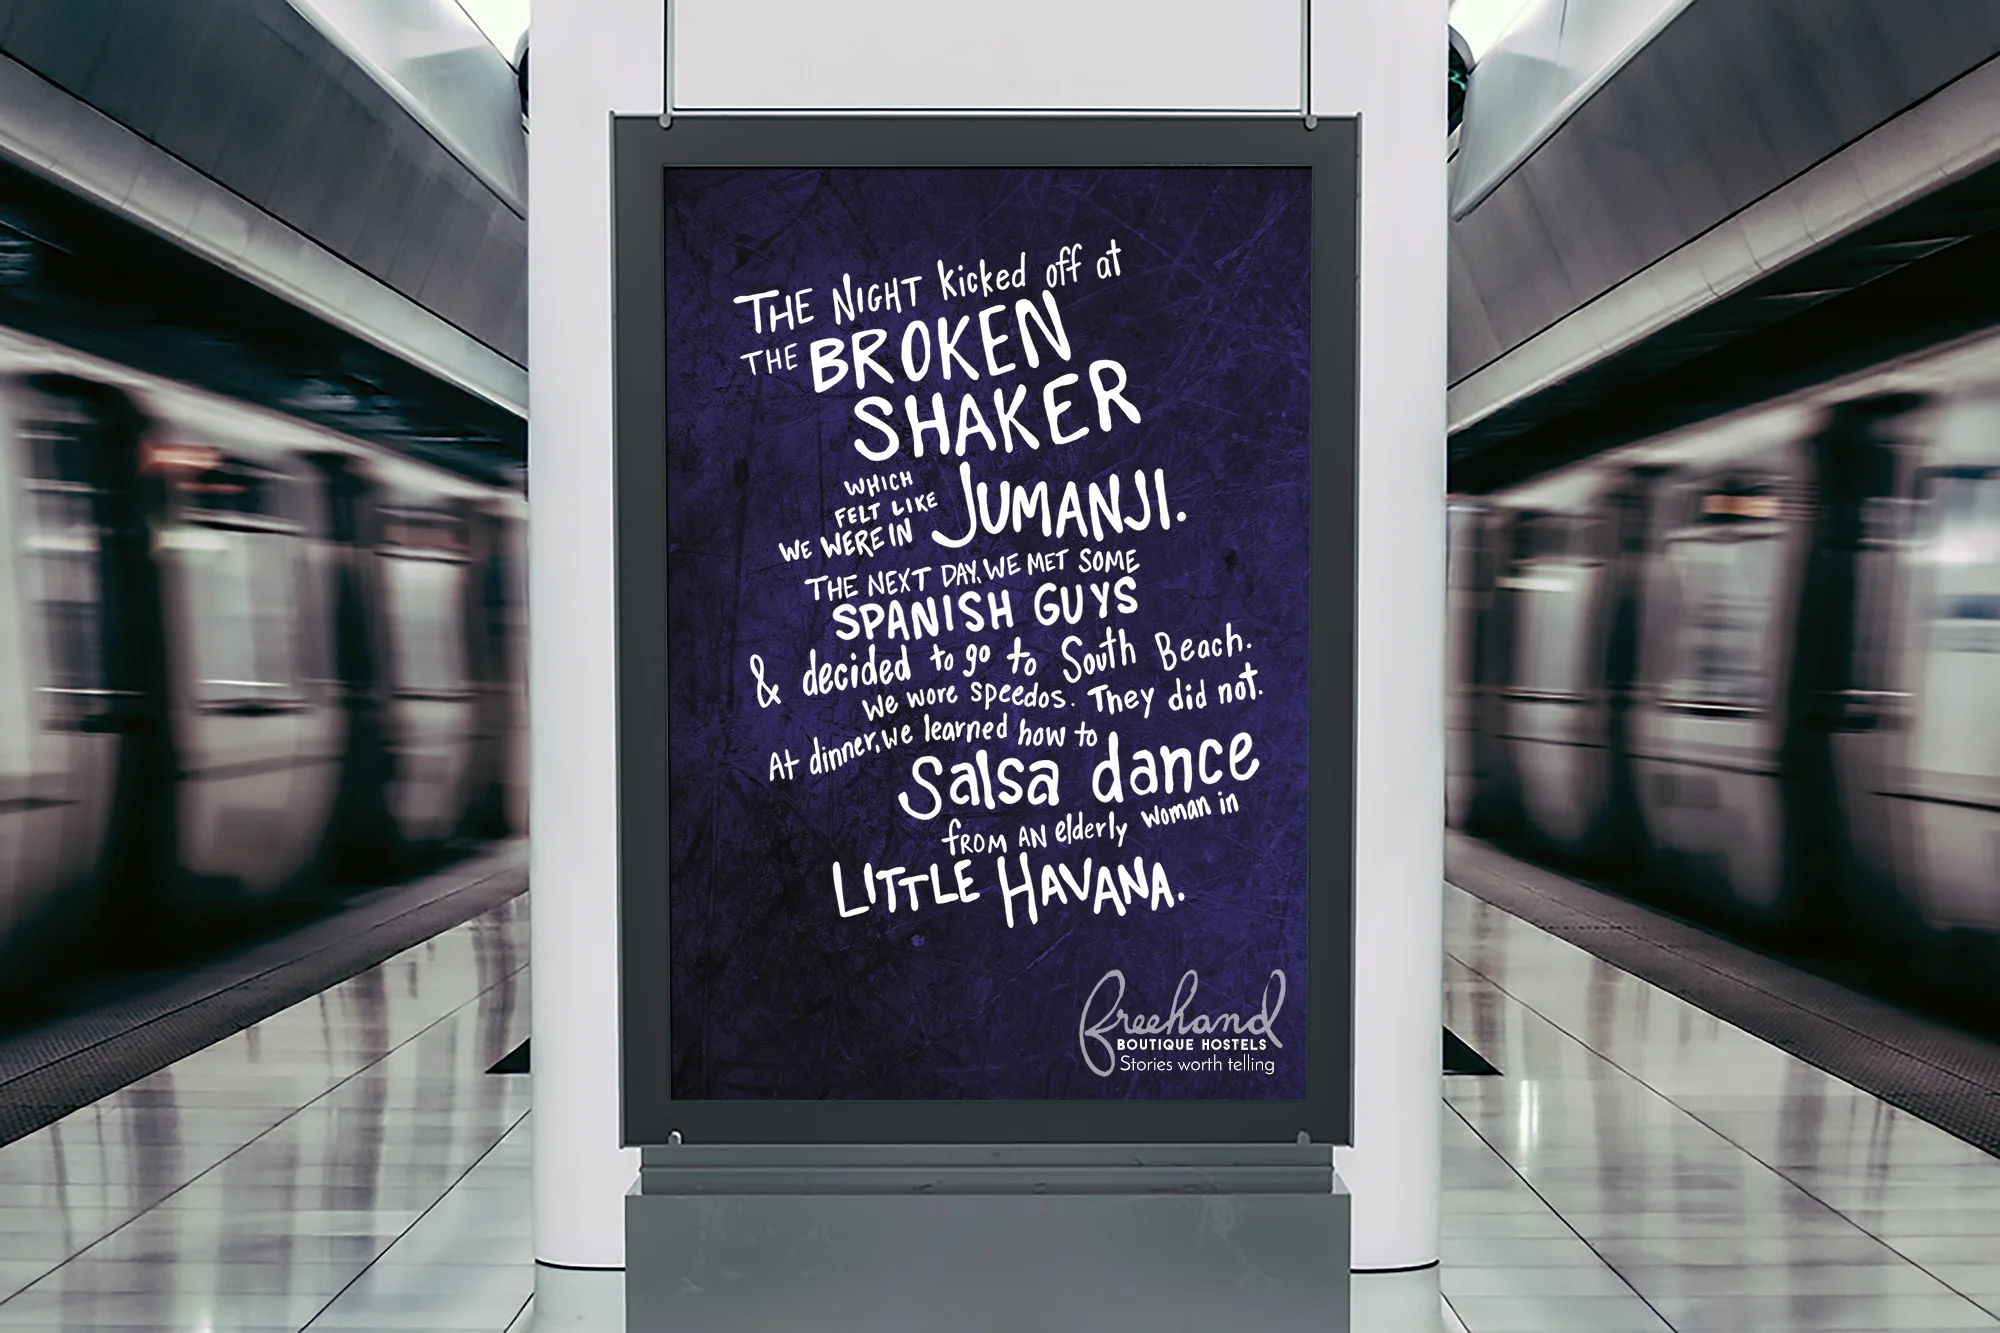 THE NIGHT kicked off at
THE BROKEN
SHAKER
WHICH
FELT LIKE
WE WERE IN JUMANJI.
THE NEXT DAY, WE MET SOME
SPANISH GUYS
& decided to go to South Beach.
We wore speedos. They did not.
At dinner, we learned how to
Salsa dance
from AN elderly woman in
LITTLE HAVANA.
freehand
BOUTIQUE HOSTELS
Stories worth telling